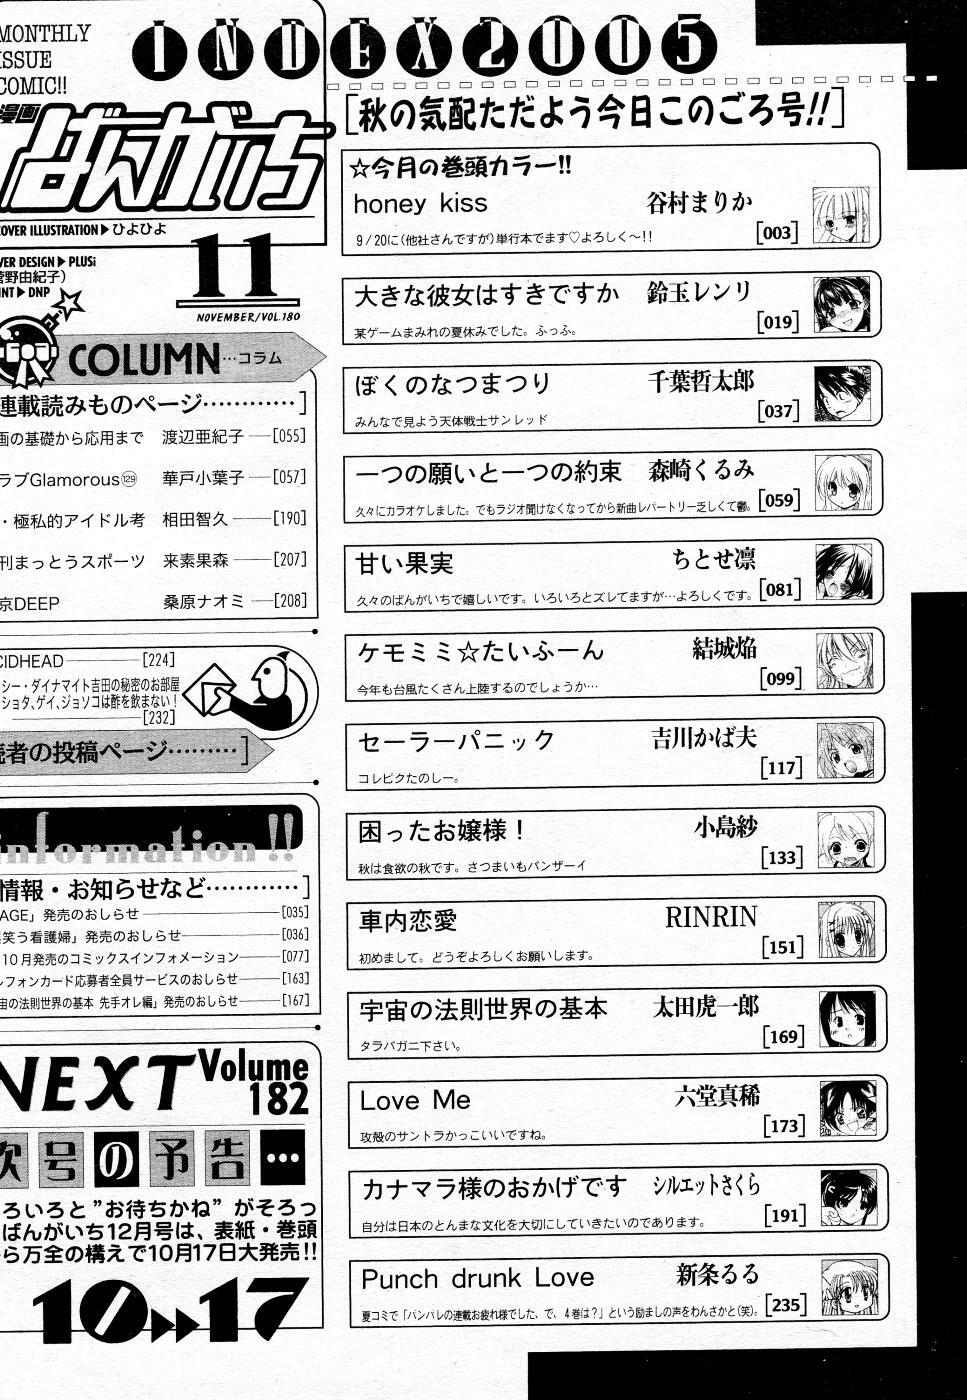 MONTHLY
ISSUE
COMIC!!
漫画
ばんがいち
COVER ILLUSTRATION▶ひよひよ
VER DESIGN▶PLUSi
菅野由紀子)
INT▶DNP
11
NOVEMBER/VOL.180
COLUMN…コラム
連載読みものページ…………]
画の基礎から応用まで 渡辺亜紀子―[055]
ラブGlamorous129 華戸小葉子―[057]
・極私的アイドル考 相田智久―[190]
刊まっとうスポーツ 来素果森―[207]
京DEEP 桑原ナオミ―[208]
CIDHEAD―[224]
シー・ダイナマイト吉田の秘密のお部屋
ショタ、ゲイ、ジョソコは酢を飲まない!
―[232]
者の投稿ページ………]
information!!
情報・お知らせなど…………]
AGE」発売のおしらせ―[035]
笑う看護婦」発売のおしらせ―[036]
10月発売のコミックスインフォメーション―[077]
レフォンカード応募者全員サービスのおしらせ―[163]
宙の法則世界の基本 先手オレ編」発売のおしらせ―[167]
NEXT Volume
182
次号の予告…
ろいろと"お待ちかね"がそろっ
ばんがいち12月号は、表紙・巻頭
ら万全の構えで10月17日大発売!!
10▶▶17
INDEX2005
[秋の気配ただよう今日このごろ号!!]
☆今月の巻頭カラー!!
honey kiss 谷村まりか
[003]
9/20に(他社さんですが)単行本でます♡よろしく〜!!
大きな彼女はすきですか 鈴玉レンリ
[019]
某ゲームまみれの夏休みでした。ふっふ。
ぼくのなつまつり 千葉哲太郎
[037]
みんなで見よう天体戦士サンレッド
一つの願いと一つの約束 森崎くるみ
[059]
久々にカラオケしました。でもラジオ聞けなくなってから新曲レパートリー乏しくて鬱。
甘い果実 ちとせ凛
[081]
久々のばんがいちで嬉しいです。いろいろとズレてますが…よろしくです。
ケモミミ☆たいふーん 結城焔
[099]
今年も台風たくさん上陸するのでしょうか…
セーラーパニック 吉川かば夫
[117]
コレピクたのしー。
困ったお嬢様! 小島紗
[133]
秋は食欲の秋です。さつまいもバンザーイ
車内恋愛 RINRIN
[151]
初めまして。どうぞよろしくお願いします。
宇宙の法則世界の基本 太田虎一郎
[169]
タラバガニ下さい。
Love Me 六堂真稀
[173]
攻殻のサントラかっこいいですね。
カナマラ様のおかげです シルエットさくら
[191]
自分は日本のとんまな文化を大切にしていきたいのであります。
Punch drunk Love 新条るる
[235]
夏コミで「バンバレの連載お疲れ様でした、で、4巻は?」という励ましの声をわんさかと(笑)。